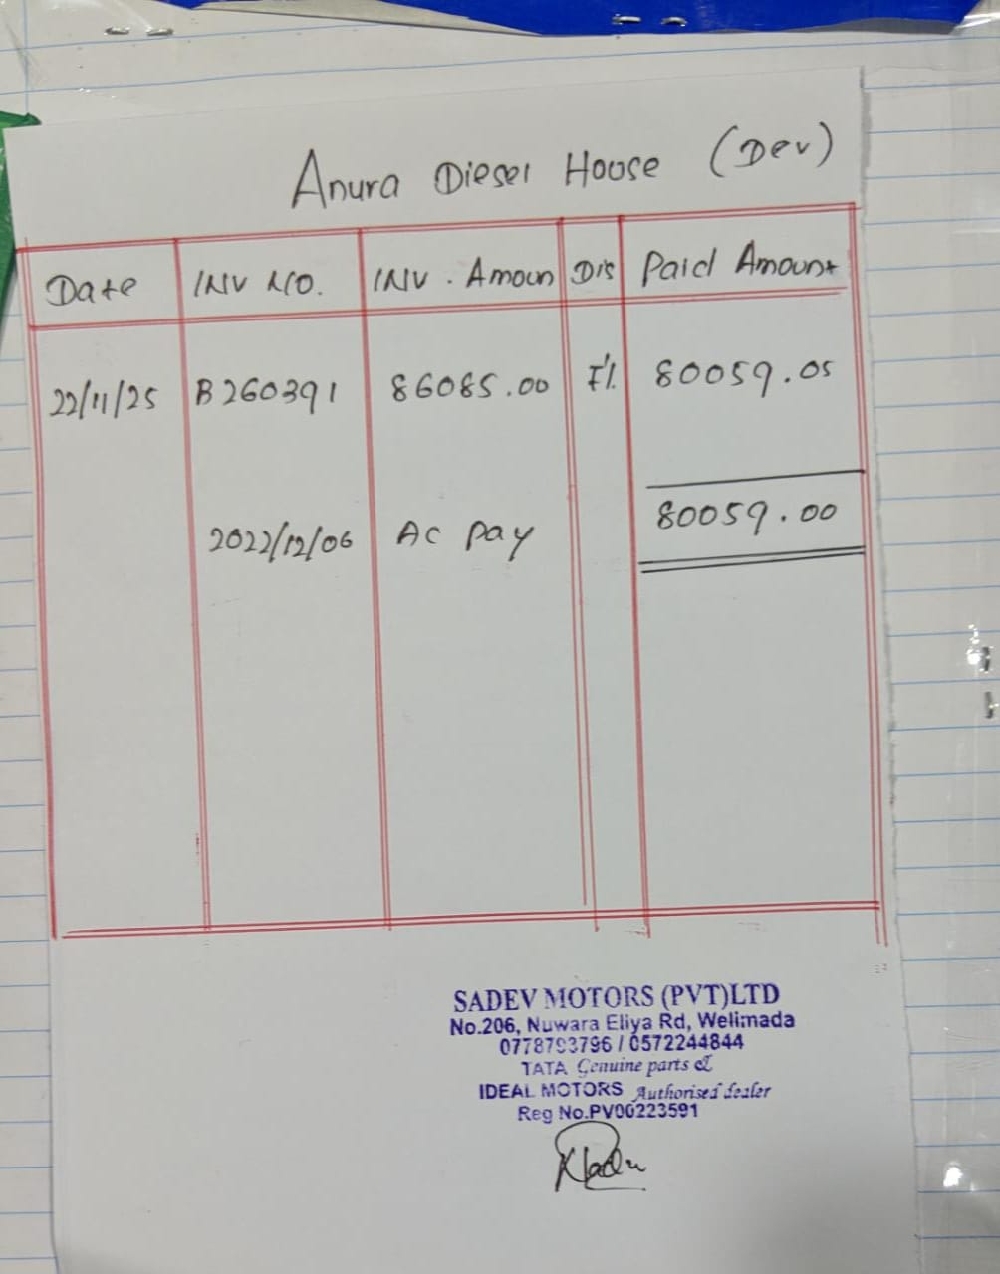 Anura Diesel House (Dev)
Date INV NO. INV. Amoun Dis Paid Amount
22/11/25 B260391 86085.00 7% 80059.05
80059.00
2022/12/06 AC Pay
SADEV MOTORS (PVT)LTD
No.206, Nuwara Eliya Rd, Welimada
0778793796 / 0572244844
TATA Genuine parts &
IDEAL MOTORS Authorised dealer
Reg No.PV00223591